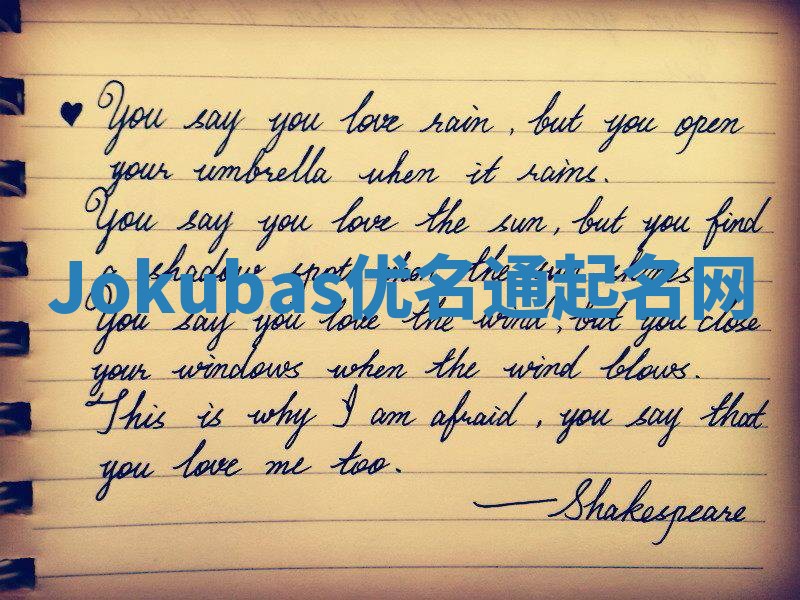 ♥ You say you love rain, but you open
your umbrella when it rains.
You say you love the sun, but you find
a shadow spot when the sun shines
Jokubas优名通起名网
You say you love the wind, but you close
your windows when the wind blows.
This is why I am afraid, you say that
you love me too.
—Shakespeare